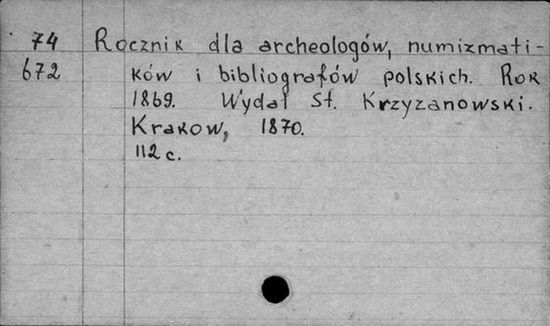 74 Rocznik dla archeologów, numizmati-
672 ków i bibliografów polskich. Rok
1869. Wydał St. Krzyzanowski.
Krakow, 1870.
112 c.